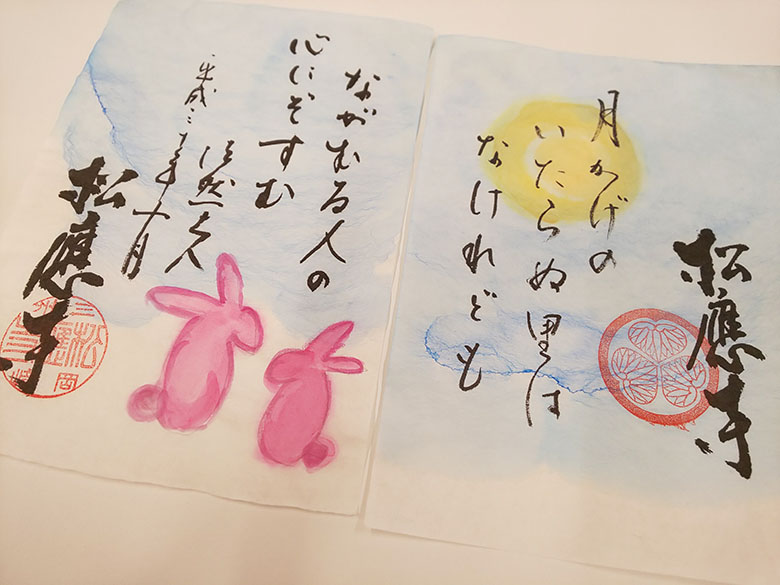 松應寺
月かげの
いたらぬ里は
なけれども
ながむる人の
心にぞすむ
法然上人
平成三十年十月
松應寺